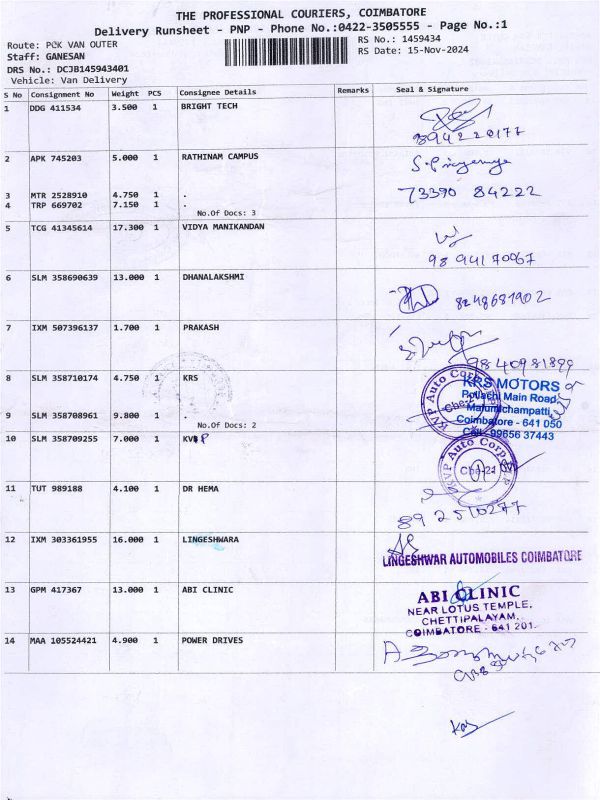 THE PROFESSIONAL COURIERS, COIMBATORE
Delivery Runsheet - PNP - Phone No.:0422-3505555 - Page No.:1
Route: PCK VAN OUTER
RS No.: 1459434
Staff: GANESAN
RS Date: 15-Nov-2024
DRS No.: DCJB145943401
Vehicle: Van Delivery
S No Consignment No Weight PCS Consignee Details Remarks Seal & Signature
1 DDG 411534 3.500 1 BRIGHT TECH
8942220177
2 APK 745203 5.000 1 RATHINAM CAMPUS
3 MTR 2528910 4.750 1 . 73390 84222
4 TRP 669702 7.150 1 .
No.Of Docs: 3
5 TCG 41345614 17.300 1 VIDYA MANIKANDAN
98 94170067
6 SLM 358690639 13.000 1 DHANALAKSHMI
8248681902
7 IXM 507396137 1.700 1 PRAKASH
9840981899
8 SLM 358710174 4.750 1 KRS
KVP Auto Corp
KRS MOTORS
Pollachi Main Road,
Malumichampatti,
Coimbatore - 641 050
Cell: 99656 37443
9 SLM 358708961 9.800 1 .
No.Of Docs: 2
10 SLM 358709255 7.000 1 KVP
KVP Auto Corp
Cbe-21
11 TUT 989188 4.100 1 DR HEMA
89 2510277
12 IXM 303361955 16.000 1 LINGESHWARA
LINGESHWAR AUTOMOBILES COIMBATORE
13 GPM 417367 13.000 1 ABI CLINIC
ABI CLINIC
NEAR LOTUS TEMPLE,
CHETTIPALAYAM,
COIMBATORE - 641 201.
14 MAA 105524421 4.900 1 POWER DRIVES